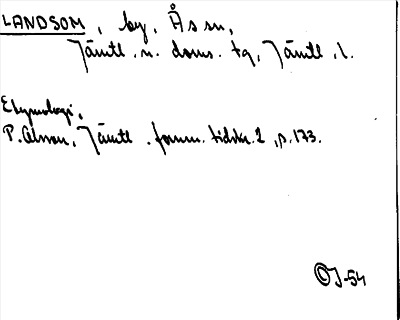 LANDSOM, by, Ås sn,
Jämtl. n. doms. tg, Jämtl. l.
Etymologi,
P. Olsson, Jämtl. fornm. tidskr. 2, p. 173.
OJ-54